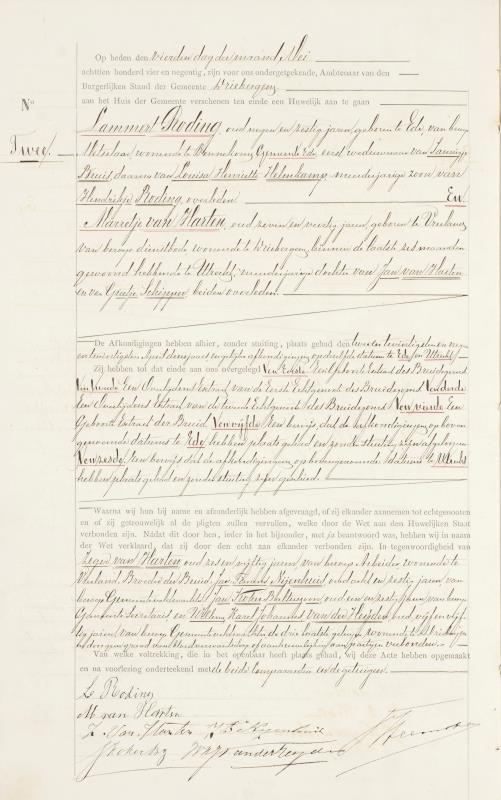 Op heden den vierden dag der maand Mei
achttien honderd vier en negentig, zijn voor ons ondergeteekende, Ambtenaar van den
Burgerlijken Stand der Gemeente Driebergen
aan het Huis der Gemeente verschenen ten einde een Huwelijk aan te gaan
No
Twee.
Lammert Roding, oud negen en zestig jaren, geboren te Ede, van beroep
Metselaar, wonende te Bennekom, Gemeente Ede, eerst weduwnaar van
Bruis, daarna van Louisa Henriette Helenkamp, meerderjarige zoon van
Hendrikje Roding, overleden. En
Marretje van Harten, oud zeven en veertig jaren, geboren te Vreeland,
van beroep dienstbode, wonende te Driebergen, binnen de laatste zes maanden
gewoond hebbende te Utrecht, meerderjarige dochter van Jan van Harten
en van Grietje Schipper, beiden overleden.
De Afkondigingen hebben alhier, zonder stuiting, plaats gehad den twee en twintigsten en negen
en twintigsten April dezes jaars en gelijke afkondigingen op dezelfde datums te Ede en Utrecht.
Zij hebben tot dat einde aan ons overgelegd Ten Eerste Een Geboorte Extract des Bruidegoms
Ten tweede Een Overlijdens Extract van de Eerste Echtgenoot des Bruidegoms Ten derde
Een Overlijdens Extract van de tweede Echtgenoot des Bruidegoms Ten vierde Een
Geboorte Extract der Bruid Ten vijfde Een bewijs, dat de afkondigingen op boven
genoemde datums te Ede hebben plaats gehad en zonder stuiting zijn afgeloopen
Ten zesde Een bewijs dat de afkondigingen op bovengenoemde datums te Utrecht
hebben plaats gehad en zonder stuiting zijn
Waarna wij hun bij name en afzonderlijk hebben afgevraagd, of zij elkander aannemen tot echtgenooten
en of zij getrouwelijk al de pligten zullen vervullen, welke door de Wet aan den Huwelijken Staat
verbonden zijn. Nadat dit door hen, ieder in het bijzonder, met ja beantwoord was, hebben wij in naam
der Wet verklaard, dat zij door den echt aan elkander verbonden zijn. In tegenwoordigheid van
van Harten oud zes en vijftig jaren, van beroep Arbeider, wonende te
Vreeland, Broeder der Bruid, Jan Nijenhuis oud acht en zestig jaren, van
beroep Gemeente Jan oud een en zestig jaren, van beroep
Gemeente Secretaris en Willem Karel Johannes van der Heijden, oud vijf en vijf
tig jaren, van beroep Gemeente de drie laatste getuigen, wonende te Driebergen
en door geen graad van bloedverwantschap of aanhuwelijking aan partijen verbonden.
Van welke voltrekking, die in het openbaar heeft plaats gehad, wij deze Acte hebben opgemaakt
en na voorlezing onderteekend met de beide comparanten en de getuigen.
L Roding
M van Harten
Z. Van Harten
WKJ van der Heyden